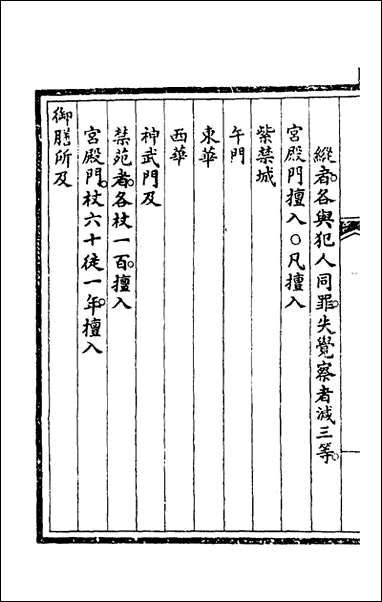 縱者各與犯人同罪失覺察者減三等
宮殿門擅入〇凡擅入
紫禁城
午門
東華
西華
神武門及
禁苑者各杖一百擅入
宮殿門杖六十徒一年擅入
御膳所及